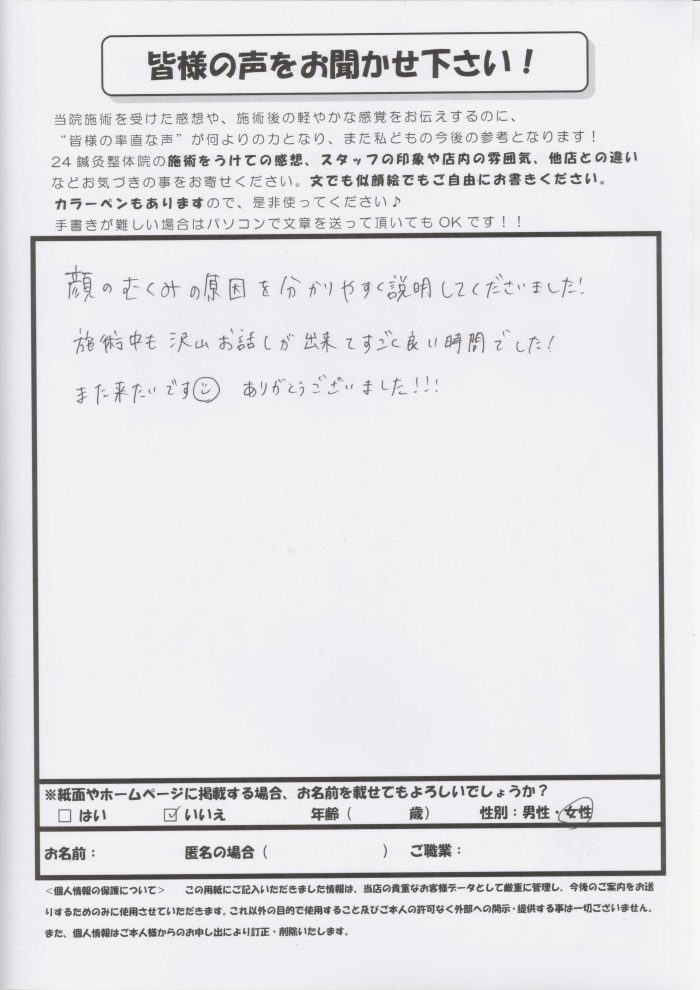 皆様の声をお聞かせ下さい！
当院施術を受けた感想や、施術後の軽やかな感覚をお伝えするのに、
“皆様の率直な声”が何よりの力となり、また私どもの今後の参考となります！
24鍼灸整体院の施術をうけての感想、スタッフの印象や店内の雰囲気、他店との違い
などお気づきの事をお寄せください。文でも似顔絵でもご自由にお書きください。
カラーペンもありますので、是非使ってください♪
手書きが難しい場合はパソコンで文章を送って頂いてもOKです！！
顔のむくみの原因を分かりやすく説明してくださいました!
施術中も沢山お話しが出来てすごく良い時間でした!
また来たいです☺ ありがとうございました!!!
※紙面やホームページに掲載する場合、お名前を載せてもよろしいでしょうか？
□ はい ☑ いいえ 年齢（ 歳） 性別：男性・女性
お名前： 匿名の場合（ ） ご職業：
＜個人情報の保護について＞ この用紙にご記入いただきました情報は、当店の貴重なお客様データとして厳重に管理し、今後のご案内をお送
りするためのみに使用させていただきます。これ以外の目的で使用すること及びご本人の許可なく外部への開示・提供する事は一切ございません。
また、個人情報はご本人様からのお申し出により訂正・削除いたします。